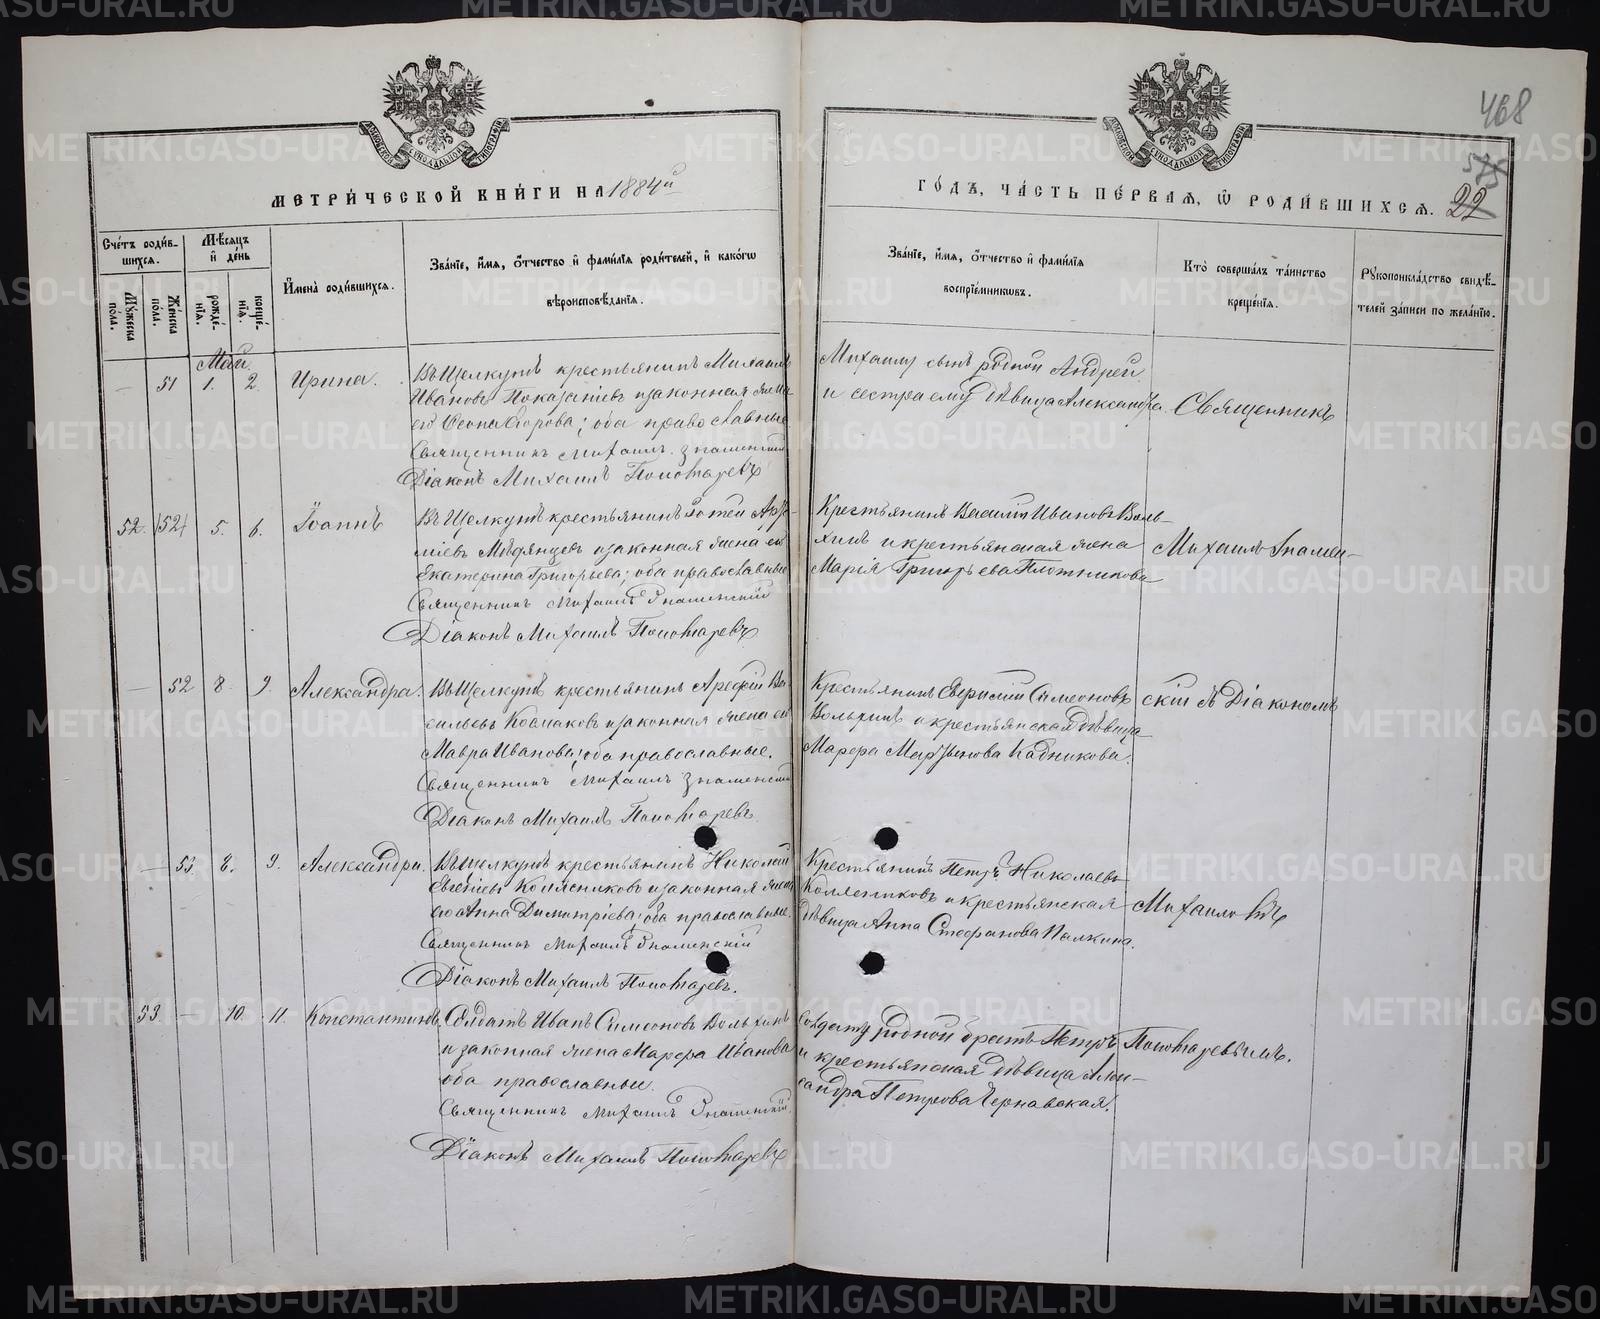 468
575
22
МОСКОВСКОЙ СѴНОДАЛЬНОЙ ТИПОГРАФІИ
МОСКОВСКОЙ СѴНОДАЛЬНОЙ ТИПОГРАФІИ
МЕТРИ́ЧЕСКОЙ КНИ́ГИ НА 1884й
ГО́ДЪ, ЧА́СТЬ ПЕ́РВАЯ, Ѡ РОДИ́ВШИХСЯ.
Сче́тъ роди́в-
шихся.
Мѣ́сяцъ
и де́нь
Му́жеска по́ла.
Же́нска по́ла.
рожде́-
нія.
креще́-
нія.
Имена̀ роди́вшихся.
Зва́ніе, и́мя, о́тчество и фами́лія роди́телей, и како́гѡ
вѣроисповѣ́данія.
Зва́ніе, и́мя, о́тчество и фами́лія
воспріе́мниковъ.
Кто̀ соверша́лъ та́инство
креще́нія.
Рукоприкла́дство свидѣ́-
телей за́писи по жела́нію.
Май
— 51 1. 2. Ирина.
Въ Щелкунѣ крестьянинъ Михаилъ
Ивановъ и законная жена
его Егорова; оба православные
Священникъ Михаилъ Знаменскій
Діаконъ Михаилъ Пономаревъ
Михаилу сынъ родной Андрей
и сестра ему дѣвица Александра.
Священникъ
52. 52 5. 6. Іоаннъ
Въ Щелкунѣ крестьянинъ
и законная жена его
Екатерина Григорьева; оба православные
Священникъ Михаилъ Знаменскій
Діаконъ Михаилъ Пономаревъ
Крестьянинъ Василій Ивановъ Воль-
хинъ и крестьянская жена
Марія Григорьева Плотникова
Михаилъ Знамен-
— 52 8. 9. Александра.
Въ Щелкунѣ крестьянинъ Арефій Ва-
сильевъ и законная жена его
Мавра Иванова; оба православные.
Священникъ Михаилъ Знаменскій
Діаконъ Михаилъ Пономаревъ
Крестьянинъ Симеоновъ
Вольхинъ и крестьянская дѣвица
Марфа Мартынова Кадникова.
скій съ Діакономъ
— 53. 8. 9. Александра.
Въ Щелкунѣ крестьянинъ Николай
и законная жена
его Анна Димитріева; оба православные.
Священникъ Михаилъ Знаменскій
Діаконъ Михаилъ Пономаревъ.
Крестьянинъ Петръ Николаевъ
и крестьянская
дѣвица Анна Стефанова Палкина.
Михаиломъ
53. — 10. 11. Константинъ.
Солдатъ Иванъ Симеоновъ Вольхинъ
и законная жена Марфа Иванова
оба православные.
Священникъ Михаилъ Знаменскій
Діаконъ Михаилъ Пономаревъ
Солдату родной братъ Петръ
и крестьянская дѣвица Алек-
сандра Петрова Чернавская.
Пономаревымъ.
METRIKI.GASO-URAL.RU